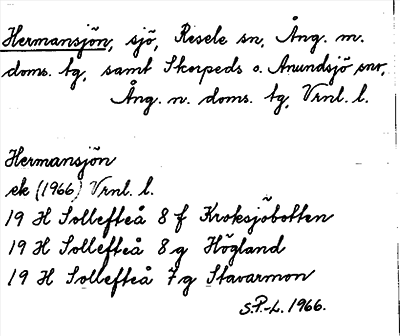 Hermansjön, sjö, Resele sn, Ång. m.
doms. tg, samt Skorpeds o. Anundsjö snr,
Ång. n. doms. tg, Vrnl. l.
Hermansjön
ek (1966) Vrnl. l.
19 H Sollefteå 8 f Kroksjöbotten
19 H Sollefteå 8 g Högland
19 H Sollefteå 7 g Stavarmon
S.P.-L. 1966.